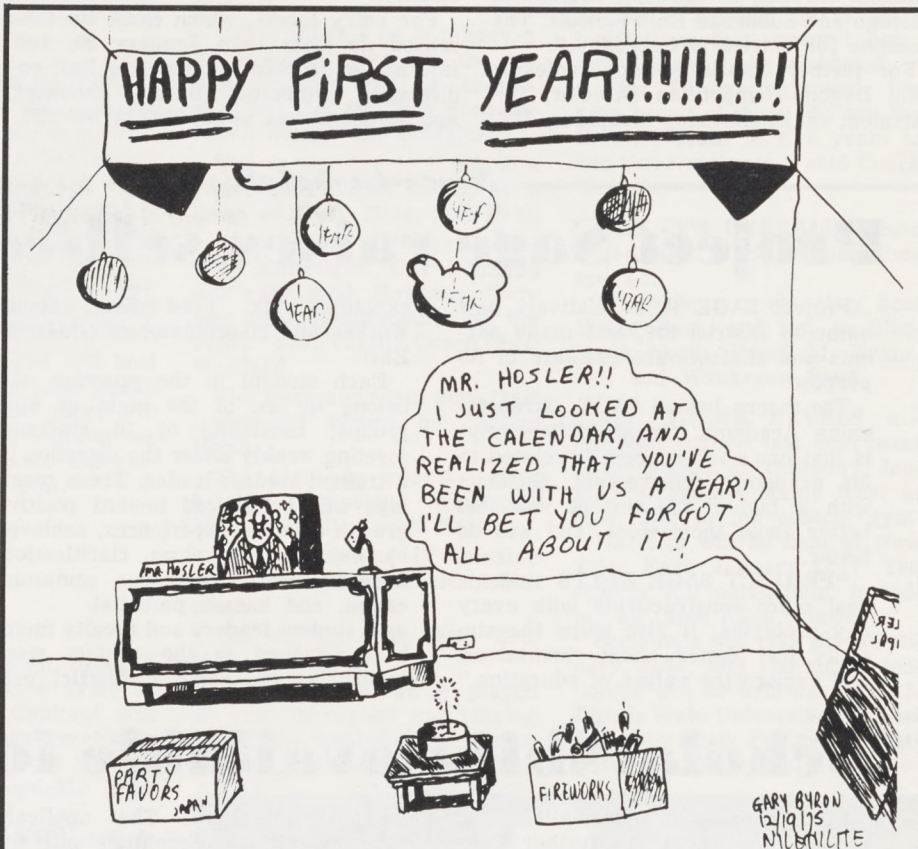 HAPPY FiRST YEAR!!!!!!!!!!
YEAR
YEAR
MR. HOSLER!!
I JUST LOOKED AT
THE CALENDAR, AND
REALIZED THAT YOU'VE
BEEN WITH US A YEAR!
I'LL BET YOU FORGOT
ALL ABOUT IT!!
MR. HOSLER
PARTY
FAVORS
JAPAN
FIREWORKS
GARY BYRON
12/19/75
NILEHILITE